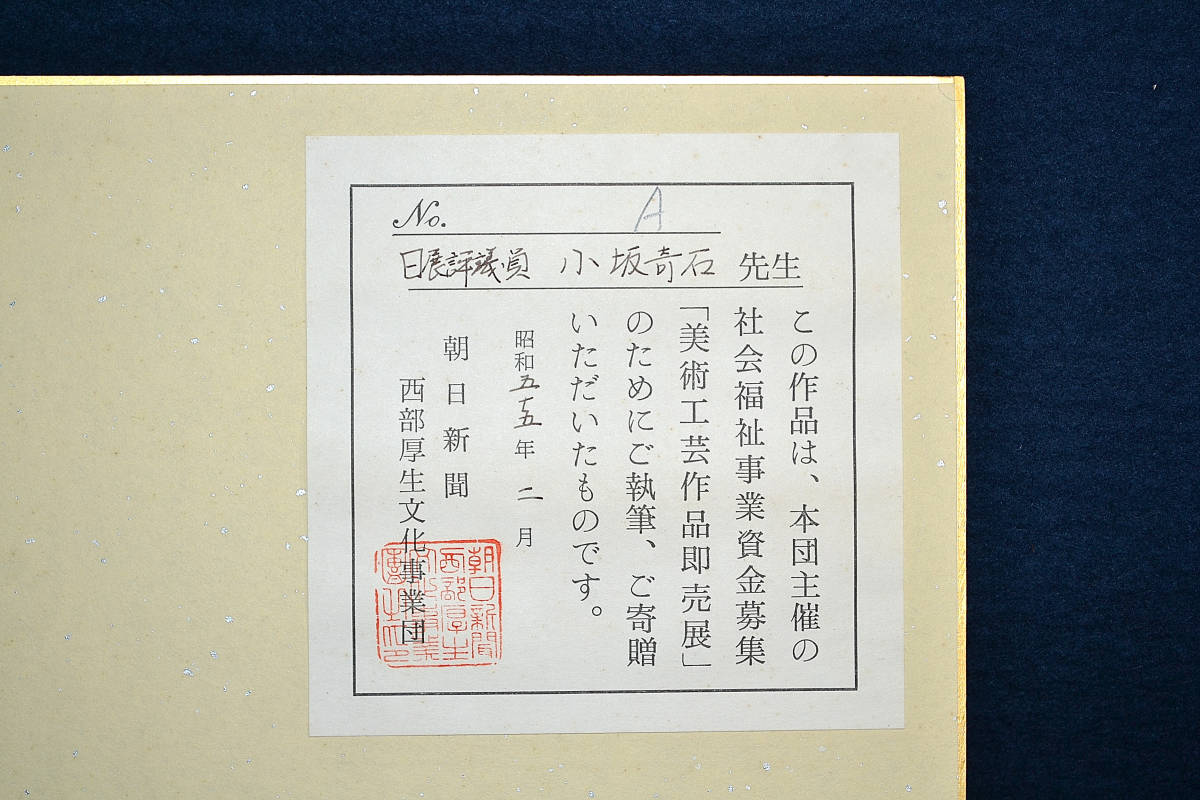 No. A
日展評議員 小坂奇石 先生
この作品は、本団主催の
社会福祉事業資金募集
「美術工芸作品即売展」
のためにご執筆、ご寄贈
いただいたものです。
昭和五十五年 二月
朝日新聞
西部厚生文化事業団